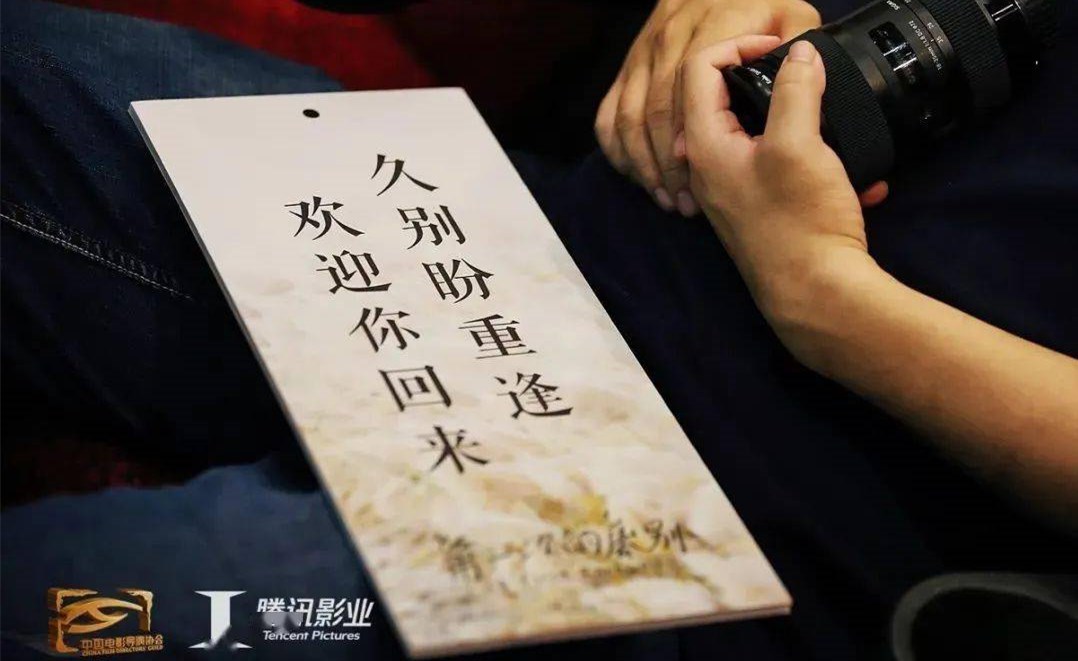 久别盼重逢
欢迎你回来
中国电影导演协会
CHINA FILM DIRECTORS' GUILD
腾讯影业
Tencent Pictures